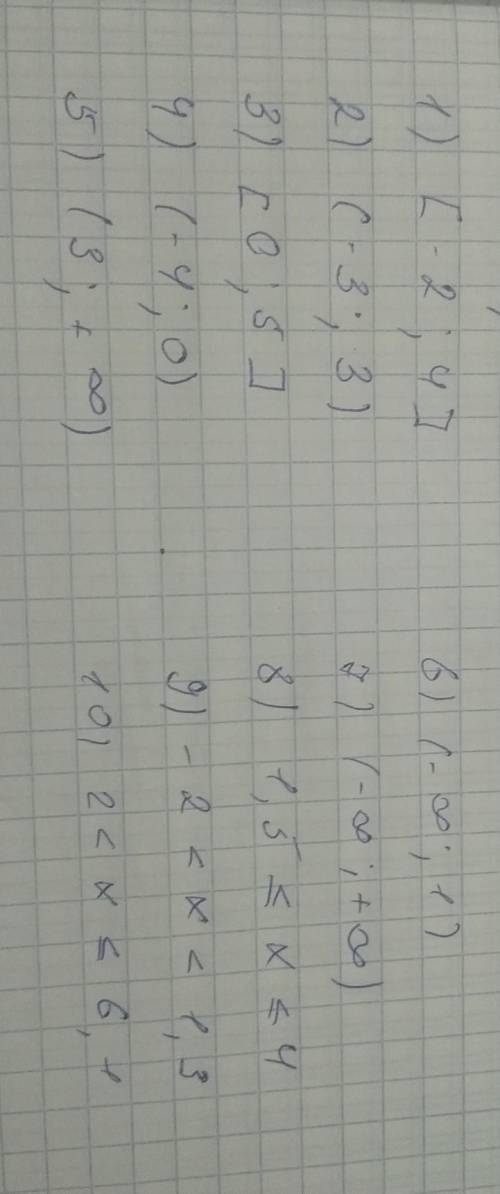 1) [-2; 4]
2) (-3; 3)
3) [0; 5]
4) (-4; 0)
5) (3; +∞)
6) (-∞; 1)
7) (-∞; +∞)
8) 1,5 ≤ x ≤ 4
9) -2 < x < 1,3
10) 2 < x ≤ 6,1